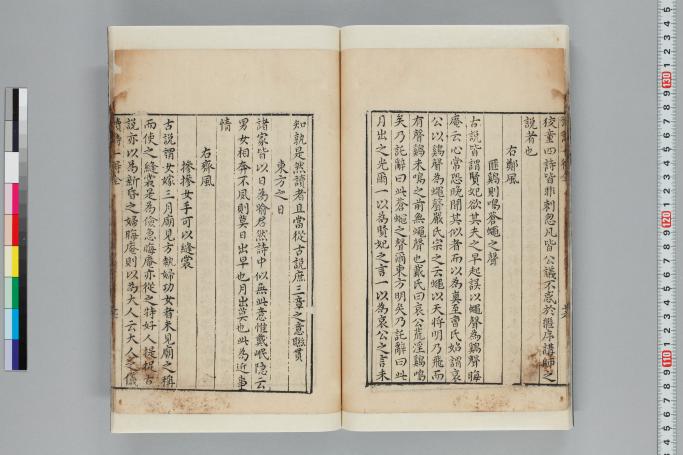 狡童四詩皆非刺忽凡皆公議不惑於舊序講師之
說者也
右鄭風
匪鷄則鳴蒼蠅之聲
古說皆謂賢妃欲其夫之早起誤以蠅聲爲鷄聲晦
庵云心常恐晚聞其似者而以爲真至曹氏始謂哀
公以鷄聲爲蠅聲嚴氏宗之云蠅以天將明乃飛而
有聲鷄未鳴之前無蠅聲也戴氏曰哀公荒淫鷄鳴
矣乃託辭曰此蒼蠅之聲爾東方明矣乃託辭曰此
月出之光爾一以爲賢妃之言一以爲哀公之言未
知孰是然讀者且當從古說庶三章之意聯貫
東方之日
諸家皆以日爲喻君然詩中似無此意惟戴岷隱云
男女相奔不夙則莫日出早也月出莫也此爲近事
情
右齊風
摻摻女手可以縫裳
古說謂女嫁三月廟見方執婦功女者未見廟之稱
而使之縫裳是爲儉急晦庵亦從之特好人提提古
說亦以爲新昏之婦晦庵則以爲大人云大人之儀